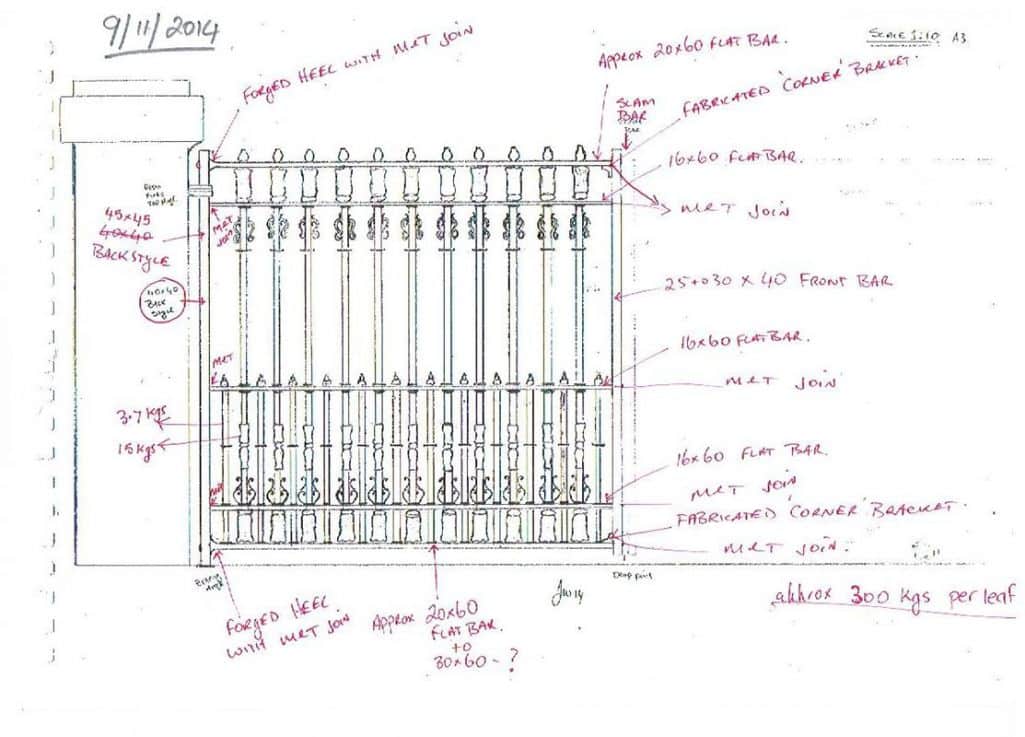 9/11/2014
SCALE 1:10 A3
FORGED HEEL WITH M&T JOIN
APPROX 20x60 FLAT BAR.
FABRICATED 'CORNER' BRACKET.
SLAM
BAR
16x60 FLAT BAR.
M&T JOIN
M&T
JOIN
45x45
40x40
BACKSTYLE
40x40
Back
Style
25 to 30 x 40 FRONT BAR
16x60 FLAT BAR.
M&T
M&T JOIN
3.7 kgs
15 kgs
16x60 FLAT BAR.
M&T JOIN
FABRICATED 'CORNER' BRACKET.
M&T JOIN.
Drop bolt
approx 300 kgs per leaf
FORGED HEEL
WITH M&T JOIN
APPROX 20x60
FLAT BAR.
to
30x60 - ?